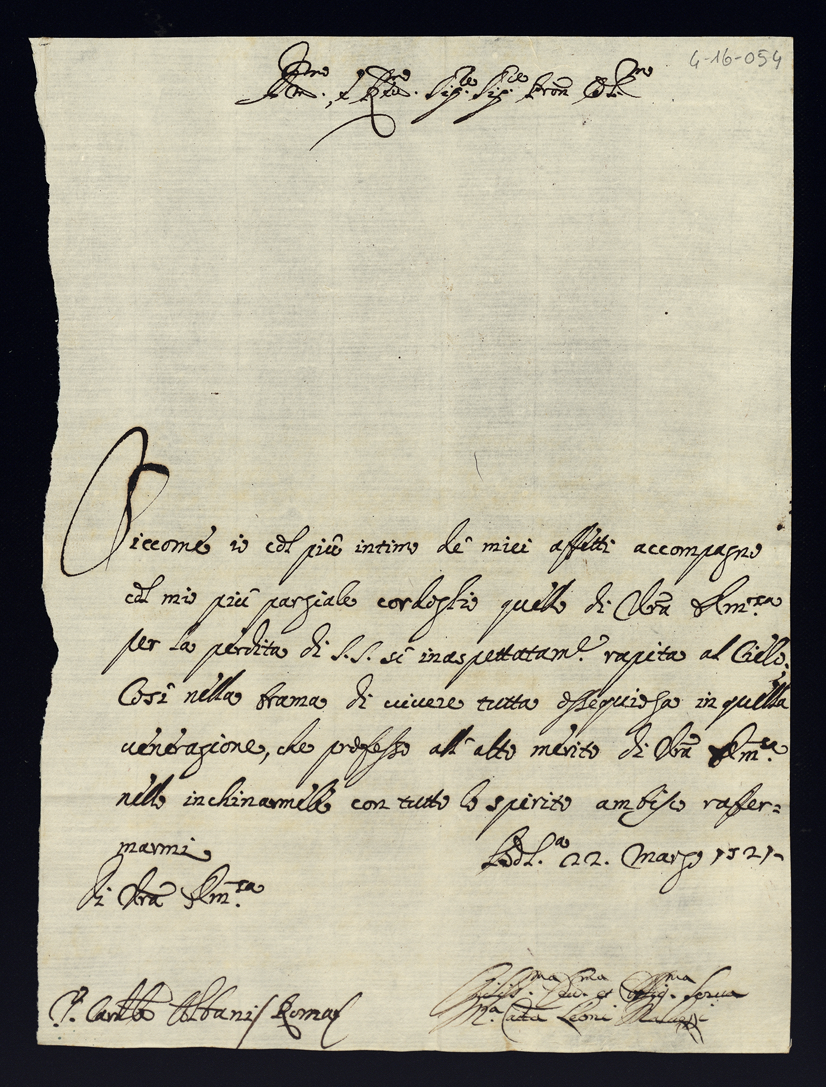 4-16-054
Em.mo, e R.mo Sig.re Sig.re Pron Col.mo
Siccome io col più intimo de' miei affetti accompagno
col mio più parziale cordoglio quello di Vra Em.za
per la perdita di S.S. sì inaspettatam.e rapita al Cielo.
Così nella brama di vivere tutta ossequiosa in quella
venerazione, che professo all'alto merito di Vra Em.za
nello inchinarmele con tutto lo spirito ambisco raffer=
marmi
Bol.a 22. Marzo 1721
Di Vra Em.za
S.r Card.le Albani / Roma
Oblig.ma Serva
M.a Leoni